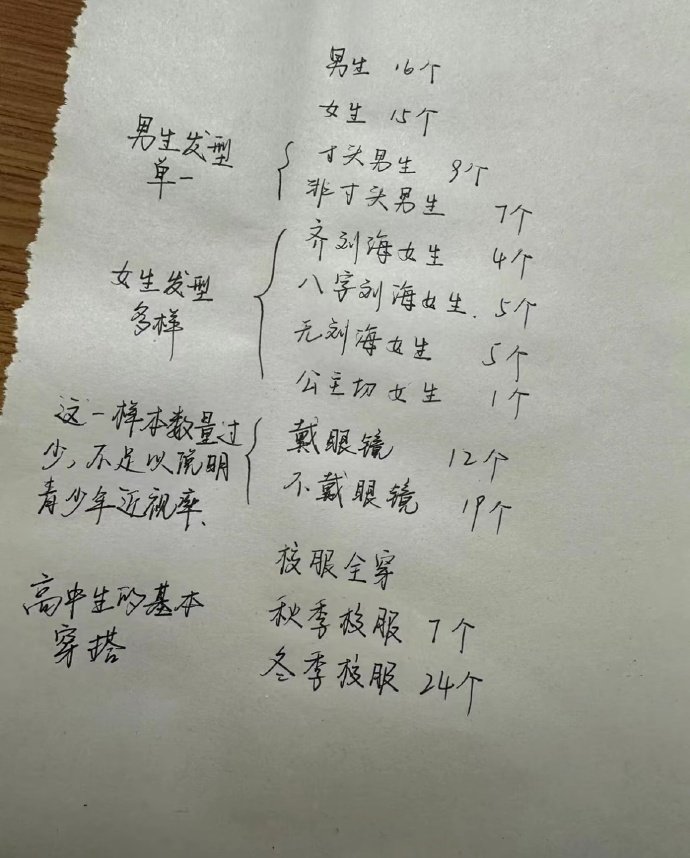 男生 16个
女生 15个
男生发型
单一
寸头男生 9个
非寸头男生 7个
女生发型
多样
齐刘海女生 4个
八字刘海女生. 5个
无刘海女生 5个
公主切女生 1个
这一样本数量过
少,不足以说明
青少年近视率.
戴眼镜 12个
不戴眼镜 19个
高中生的基本
穿搭
校服全穿
秋季校服 7个
冬季校服 24个